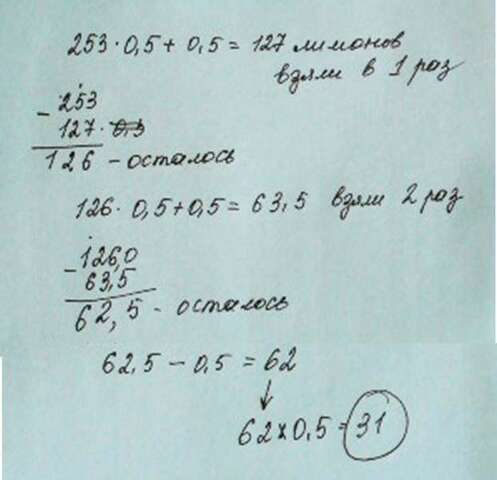 253 · 0,5 + 0,5 = 127 лимонов
взяли в 1 раз
- 253
127 ·
126 - осталось
126 · 0,5 + 0,5 = 63,5 взяли 2 раз
- 126,0
63,5
62,5 - осталось
62,5 - 0,5 = 62
↓
62 × 0,5 = 31